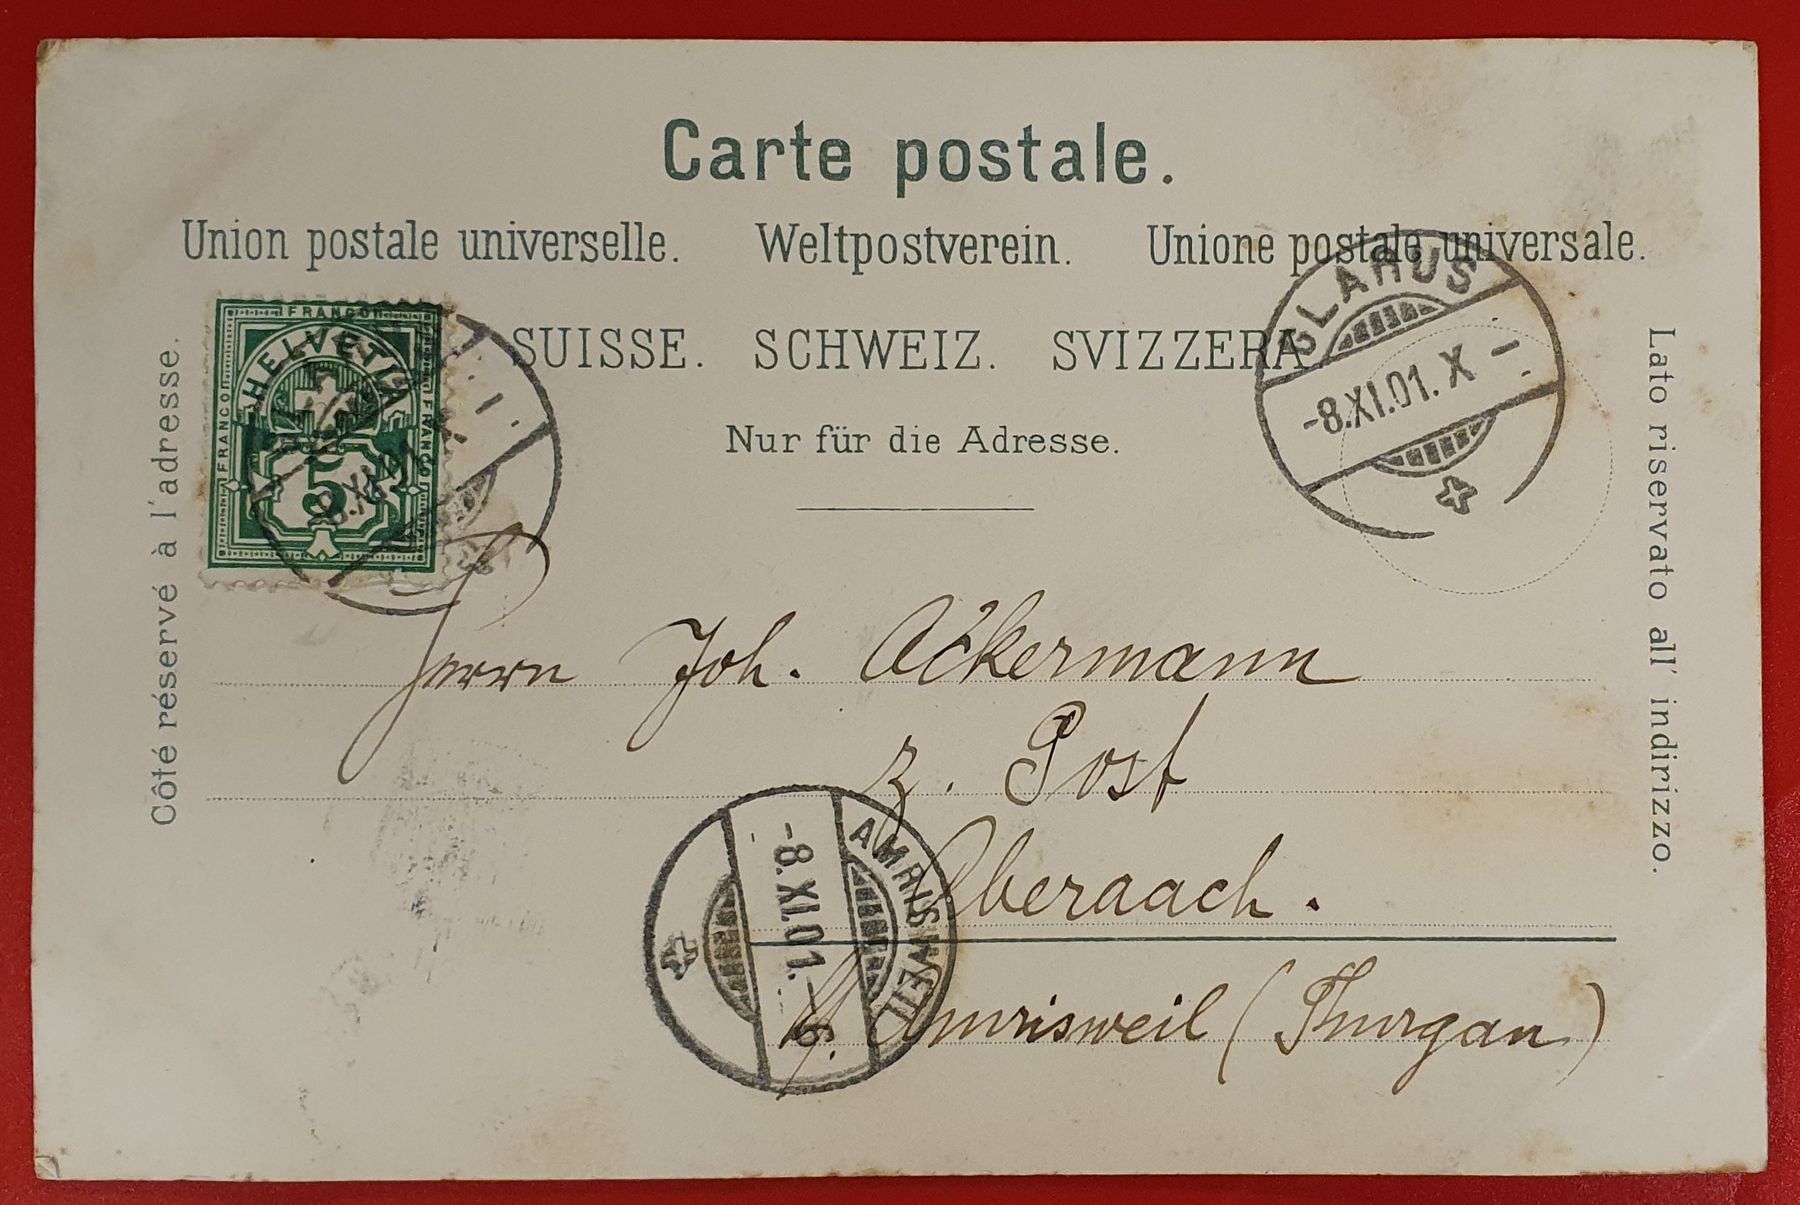 Carte postale.
Union postale universelle. Weltpostverein. Unione postale universale.
SUISSE. SCHWEIZ. SVIZZERA
Nur für die Adresse.
Côté réservé à l'adresse.
Lato riservato all' indirizzo.
FRANCO
FRANCO
FRANCO
HELVETIA
5
GLARUS
-8.XI.01. X -
Herrn Joh. Ackermann
z. Post
Oberaach.
Amrisweil (Thurgau)
AMRISWEIL
-8.XI.01. - 6